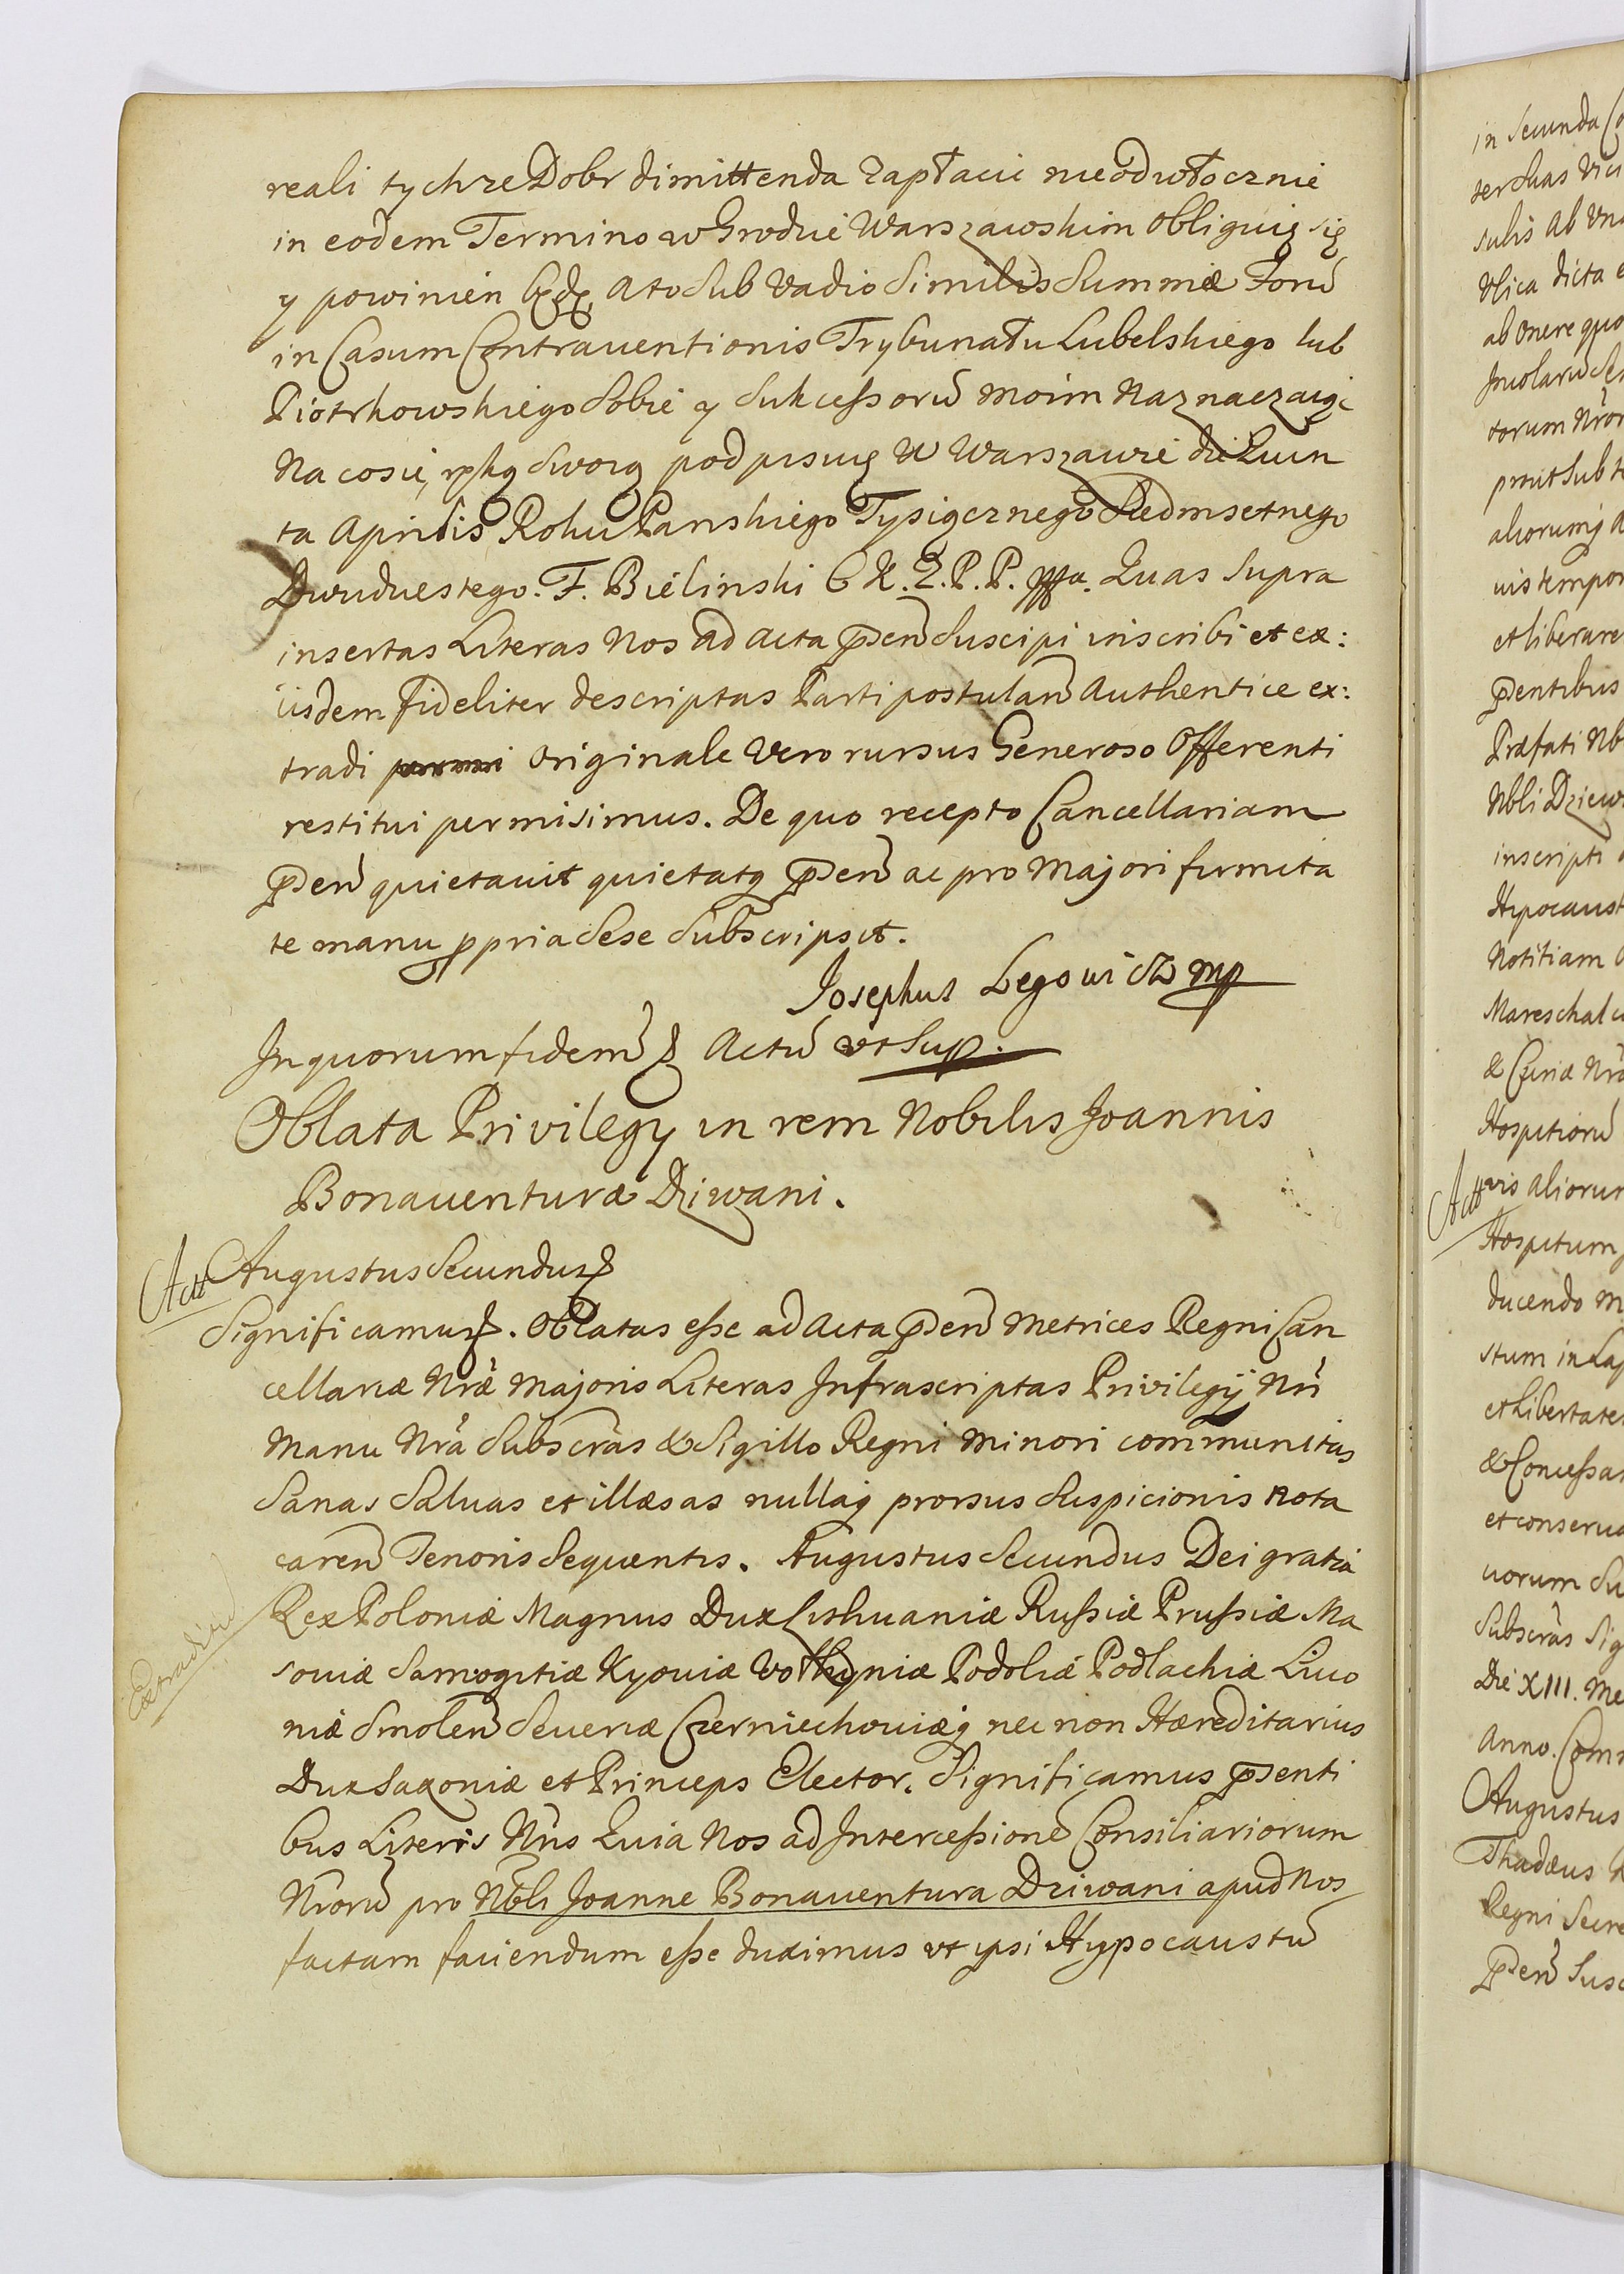 reali tychze Dobr dimittenda zapłacić nieodwłocznie
in eodem Termino w Grodzie Warszawskim obliguię się
y powinien będę, a to sub vadio similis Summæ Forū
in Casum Contrauentionis Trybunału Lubelskiego lub
Piotrkowskiego sobie y Sukcessorū moim naznaczaiąc
Na co się ręką swoią podpisuię w Warszawie die Quin
ta Aprilis Roku Panskiego Tysiącznego Siedmsetnego
Dwudziestego. F. Bielinski Quas supra
insertas Literas Nos ad acta pñ suscipi inscribi et ex:
iisdem fideliter descriptas Parti postulan authentice ex:
tradi originale vero rursus Generoso Offerenti
restitui permisimus. De quo recepto Cancellariam
pñ quietauit quietatq pñ ac pro Majori firmita
te manu ppria sese subscripsit.
Josephus Legowicz mp
In quorum fidem Actū ut sup.
Oblata Privilegy in rem Nobilis Joannis
Bonauenturæ Dziwani.
Augustus Secundus
Significamus. Oblatas esse ad acta pñ Metrices Regni Can
cellariæ Nræ Majoris Literas Infrascriptas Privilegij Nri
Manu Nra Subscras & Sigillo Regni Minori communitas
Sanas Saluas et illæsas nullaq prorsus suspicionis nota
caren Tenoris Sequentis. Augustus Secundus Dei gratia
Rex Poloniæ Magnus Dux Lithuaniæ Russiæ Prussiæ Ma
souiæ Samogitiæ Kyouiæ Volhyniæ Podoliæ Podlachiæ Liuo
niæ Smolen Seueriæ Czerniechouiæq nec non Hæreditarius
Dux Saxoniæ et Princeps Elector. Significamus psenti
bus Literis Nris Quia Nos ad Intercessionē Consiliariorum
Nrorū pro Nbli Joanne Bonauentura Dziwani apud Nos
factam faciendum esse duximus ut ipsi Hypocaustū
Extraditū
in secunda
sulis ab
Vlica dicta
ab onere quo
torum Nror
prout sub
aliorumq
uis tempor
et liberare
psentibus
Præfati Nb
Nbli Dziew
inscripti
Hypocaust
Notitiam
Mareschal
& Curiæ Nræ
Hospitiorū
uis aliorum
Hospitum
ducendo
stum in
et libertate
& Concessas
et conserua
uorum
Subscras Sig
Die XIII. Me
Anno.
Augustus
Thadæus
Regni Secre
pñ Susc